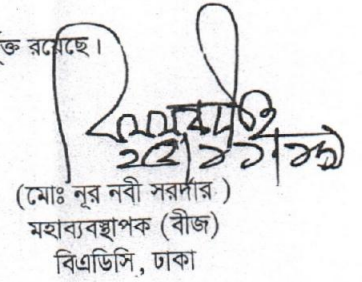 ক্ত রয়েছে।
(মোঃ নূর নবী সরদার )
মহাব্যবস্থাপক (বীজ)
বিএডিসি, ঢাকা